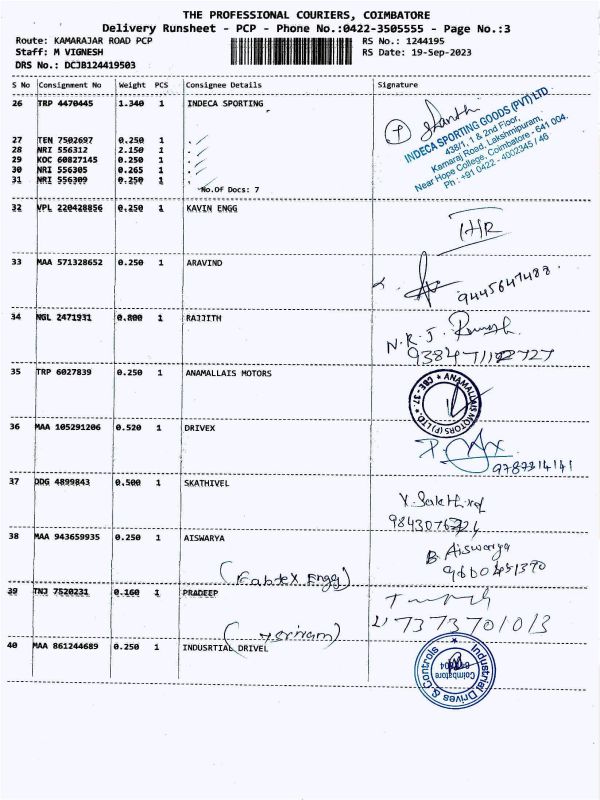 THE PROFESSIONAL COURIERS, COIMBATORE
Delivery Runsheet - PCP - Phone No.:0422-3505555 - Page No.:3
Route: KAMARAJAR ROAD PCP RS No.: 1244195
Staff: M VIGNESH RS Date: 19-Sep-2023
DRS No.: DCJB124419503
S No Consignment No Weight PCS Consignee Details Signature
26 TRP 4470445 1.340 1 INDECA SPORTING
INDECA SPORTING GOODS (PVT) LTD
438/1, 1 & 2nd Floor,
Kamaraj Road, Lakshmipuram,
Near Hope College, Coimbatore - 641 004.
Ph : +91 0422 - 4002345 / 46
27 TEN 7502697 0.250 1
28 NRI 556312 2.150 1
29 KOC 60827145 0.250 1
30 NRI 556305 0.265 1
31 NRI 556309 0.250 1
No.Of Docs: 7
32 VPL 220428856 0.250 1 KAVIN ENGG
33 MAA 571328652 0.250 1 ARAVIND
9445647488
34 NGL 2471931 0.800 1 RAJJITH
N.R.J.
35 TRP 6027839 0.250 1 ANAMALLAIS MOTORS
ANAMALLAIS MOTORS (P) LTD. CBE-37.
36 MAA 105291206 0.520 1 DRIVEX
9787314141
37 DDG 4899843 0.500 1 SKATHIVEL
38 MAA 943659935 0.250 1 AISWARYA
B. Aiswarya
(Fabtex Engg)
39 TNJ 7520231 0.160 1 PRADEEP
7373701013
40 MAA 861244689 0.250 1 INDUSRTIAL DRIVEL
Industrial Drives & Controls
Coimbatore